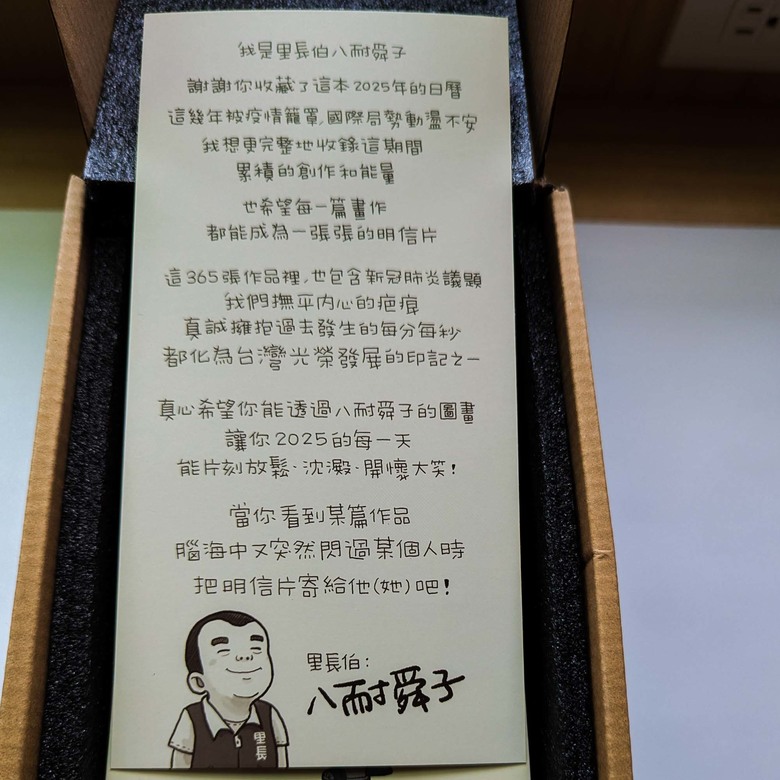 我是里長伯八耐舜子
謝謝你收藏了這本2025年的日曆
這幾年被疫情籠罩,國際局勢動盪不安
我想更完整地收錄這期間
累積的創作和能量
也希望每一篇畫作
都能成為一張張的明信片
這365張作品裡,也包含新冠肺炎議題
我們撫平內心的疤痕
真誠擁抱過去發生的每分每秒
都化為台灣光榮發展的印記之一
真心希望你能透過八耐舜子的圖畫
讓你2025的每一天
能片刻放鬆、沈澱、開懷大笑!
當你看到某篇作品
腦海中又突然閃過某個人時
把明信片寄給他(她)吧!
里長伯:
八耐舜子
里長